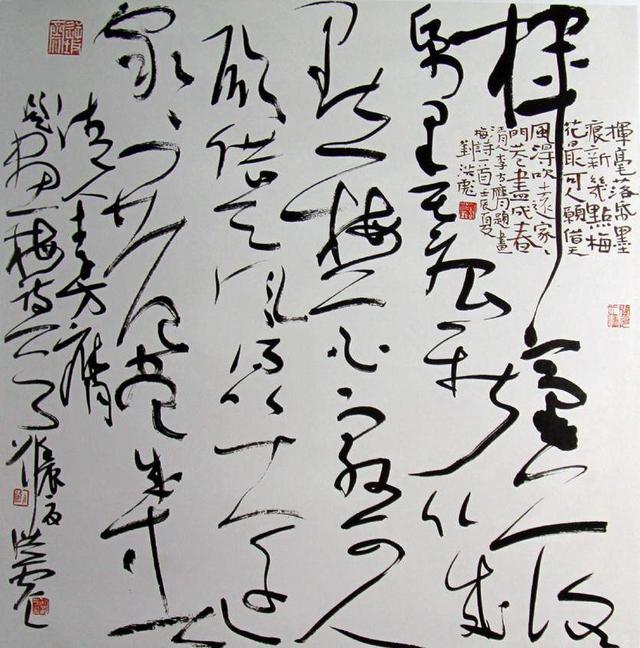 揮毫落紙墨
痕新幾點梅
花最可人願借天
風得吹遠家、
門巷盡成春
清人李方膺題畫
梅詩一首壬辰夏
劉洪彪
揮毫落
紙墨痕新幾
點梅花最可人
願借天風得吹遠
家、門巷盡成春
清人李方膺
題畫梅詩一首壬辰夏洪彪